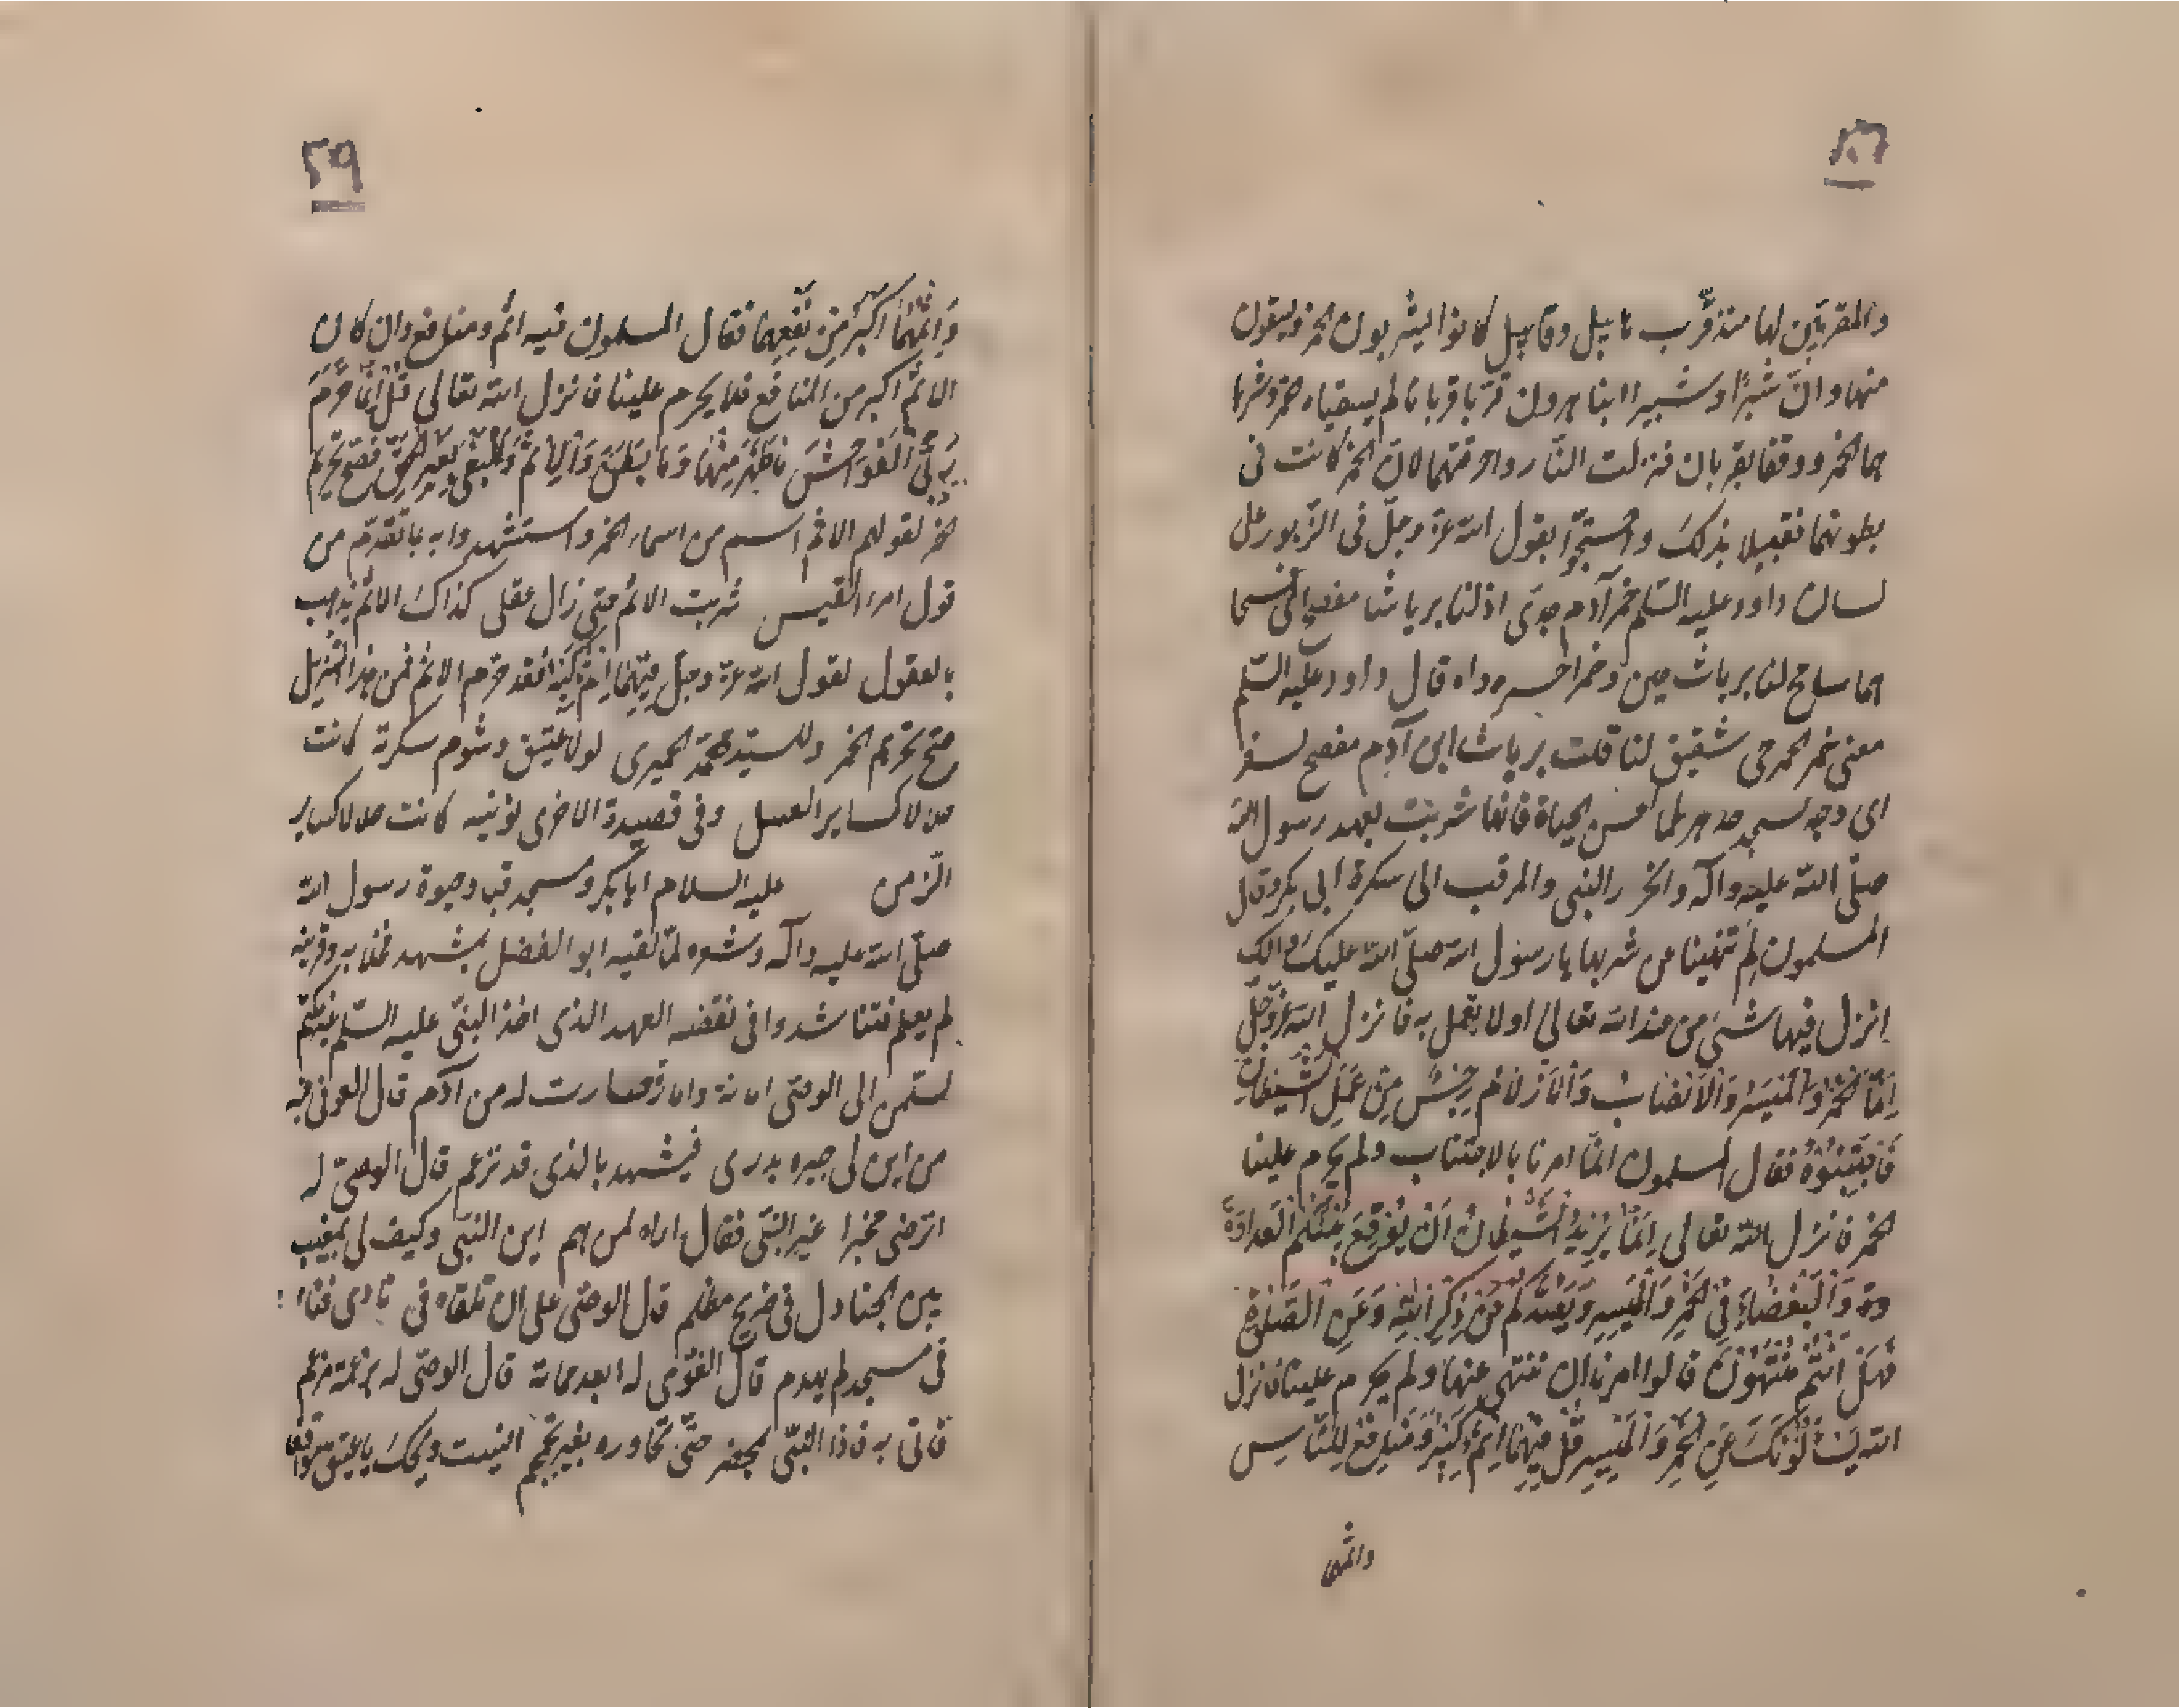 والمقربين لها منذ قرّب هابيل وقابيل كانوا يشربون الخمر ويسقون
منها وانّ شبرًا وشبيرا ابنا هرون قرّبا قربانا لم يسقياه خمر وشربا
هما الخمر ووقفا بقربان فنزلت النّار واحرقتهما لانّ الخمر كانت فى
بطونهما فقتلا بذلك واحتجّوا بقول الله عزّ وجلّ فى الزّبور على
لسان داود عليه السّلم خمر آدم جدى اذلنا برياشا مفصح
لنا برياث قال داود عليه السّلم
معنى خمر شقيق لنا قلت برياث ابى آدم مفصح لسفر
اى وجه الحياة فانها شربت بعهد رسول الله
صلّى الله عليه وآله والخمر الى سكرة ابى بكر وقال
المسلمون لم تنهينا من شربها يا رسول الله صلّى الله عليك وآلك
انزل فيها شىء من عند الله تعالى اولا نعمل به فانزل الله عزّ وجلّ
اِنَّمَا الْخَمْرُ وَالْمَيْسِرُ وَالْاَنْصَابُ وَالْاَزْلَامُ رِجْسٌ مِنْ عَمَلِ الشَّيْطَانِ
فَاجْتَنِبُوْهُ فقال المسلمون انّما امرنا بالاجتناب ولم يحرم علينا
الخمر فانزل الله تعالى اِنَّمَا يُرِيْدُ الشَّيْطَانُ اَنْ يُوْقِعَ بَيْنَكُمُ الْعَدَاوَةَ
وة وَالْبَغْضَاءَ فِى الْخَمْرِ وَالْمَيْسِرِ وَيَصُدَّكُمْ عَنْ ذِكْرِ اللهِ وَعَنِ الصَّلٰوةِ
فَهَلْ اَنْتُمْ مُنْتَهُوْنَ قالوا امرنا ان ننتهى عنها ولم يحرم علينا فانزل
الله يَسْئَلُوْنَكَ عَنِ الْخَمْرِ وَالْمَيْسِرِ قُلْ فِيْهِمَا اِثْمٌ كَبِيْرٌ وَمَنَافِعُ لِلنَّاسِ
واثمها
٢٩
وَاِثْمُهُمَا اَكْبَرُ مِنْ نَفْعِهِمَا فقال المسلمون فيه اثم ومنافع وان كان
الاثم اكبر من المنافع فلا يحرم علينا فانزل الله تعالى قُلْ اِنَّمَا حَرَّمَ
رَبِّىَ الْفَوَاحِشَ مَا ظَهَرَ مِنْهَا وَمَا بَطَنَ وَالْاِثْمَ وَالْبَغْىَ بِغَيْرِ الْحَقِّ فصحّ تحريم
الخمر لقولهم الاثم اسم من اسماء الخمر واستشهدوا به ما تقدّم من
قول امرء القيس شربت الاثم حتى زال عقلى كذاك الاثم يذهب
بالعقول لقول الله عزّ وجلّ فِيْهِمَا اِثْمٌ كَبِيْرٌ فقد حرّم الاثم فمن هذا التنزيل
صحّ تحريم الخمر وللسيّد محمّد الحميرى لولا عتيق وشوم سكرته كانت
حلالا كساير العسل وفى قصيدة الاخرى نونيه كانت حلالا كساير
الزّمن عليه السلام ابا بكر ومسجد قبا وحيوة رسول الله
صلّى الله عليه وآله وشعره لمّا لقيه ابو الفضل
لم يعلم فتناشدوا فى نقضه العهد الذى اخذ النبّى عليه السّلم عليكم
لستمن الى الوصّى امانة وامارة صارت له من آدم قال العونى فيه
من اين لى خبره يدرى فيشهد بالذى قد تزعم قال الوصىّ له
اترضى مخبرا غير النبّى فقال اراه لمن هم اين النبّى وكيف لى بمغيب
بين الجنادل فى ضريح مظلم قال الوصّى على ان تلقاه فى نادى فناء
فى مسجد لم يهدم قال الغوّى له ابعد مماته قال الوصّى له
فاتى به فاذا النبّى بمحضر حتّى تحاوره بغير تجمجم انيست ويحك يا عتيق